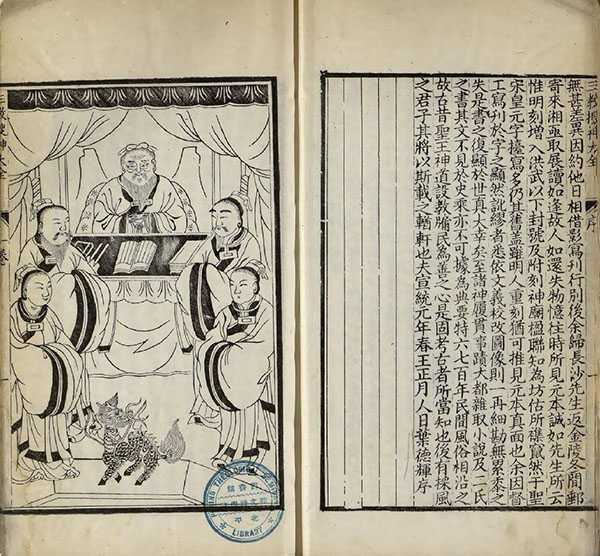 三教搜神大全
序
一
無甚差異因約他日相借影寫刊行別後余歸長沙先生返金陵冬間郵
寄來湘亟取展讀如逢故人如還失物憶往時所見元本誠如先生所云
惟明刻增入洪武以下封號及附刻神廟楹聯知為坊估所羼竄然于聖
宋皇元字擡寫多仍其舊蓋雖明人重刻猶可推見元本真面也余因督
工寫刊於字之顯然訛繆者悉依文義校改圖像則一再細勘無累黍之
失是書之復顯於世真大幸矣至諸神履貫事蹟大都雜取小說及二氏
之書其文不見於史乘亦不可據為典要特六七百年民間風俗相沿之
故古昔聖王神道設教牖民為善之心是固考古者所當知也後有採風
之君子其將以斯載之輶軒也夫宣統元年春王正月人日葉德輝序
三教搜神大全
卷
一
LIBRARY